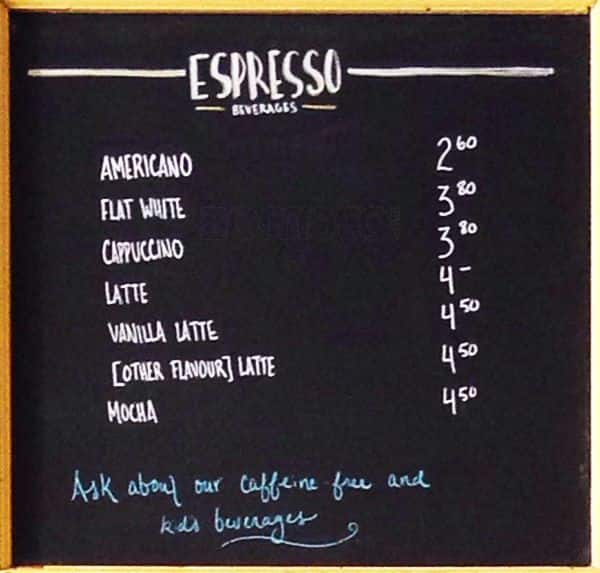 ESPRESSO
BEVERAGES
AMERICANO 2 60
FLAT WHITE 3 80
CAPPUCCINO 3 80
LATTE 4 –
VANILLA LATTE 4 50
[OTHER FLAVOUR] LATTE 4 50
MOCHA 4 50
Ask about our caffeine-free and
kids beverages